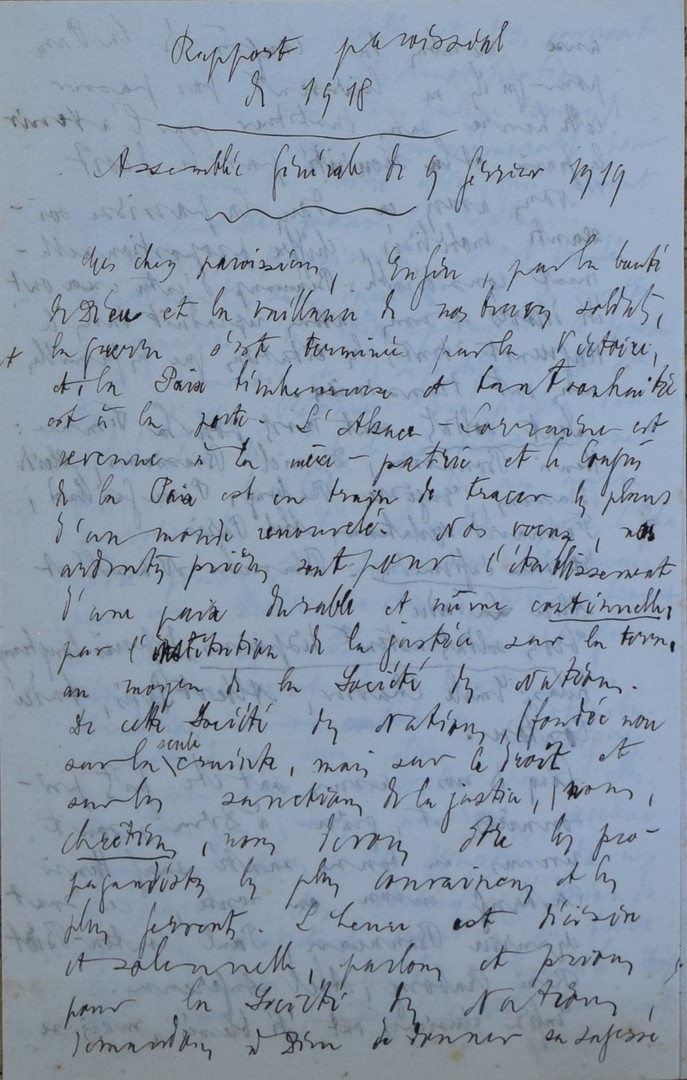 Rapport paroissial
de 1918
Assemblée Générale du 9 février 1919
Mes chers paroissiens, Enfin, par la bonté
de Dieu et la vaillance de nos braves soldats,
la guerre s'est terminée par la Victoire,
et la Paix bienheureuse et tant souhaitée
est à la porte. L'Alsace-Lorraine est
revenue à la mère-patrie et le Congrès
de la Paix est en train de tracer les plans
d'un monde renouvelé. Nos voeux, nos
ardentes prières sont pour l'établissement
d'une paix durable et même continuelle,
par l'institution de la justice sur la terre,
au moyen de la Société des Nations.
De cette Société des Nations, (fondée non
sur la seule crainte, mais sur le Droit et
sur les sanctions de la justice,) nous,
chrétiens, nous devons être les pro-
pagandistes les plus convaincus et les
plus fervents. L'heure est décisive
et solennelle, parlons et prions
pour la Société des Nations,
demandons à Dieu de donner sa sagesse